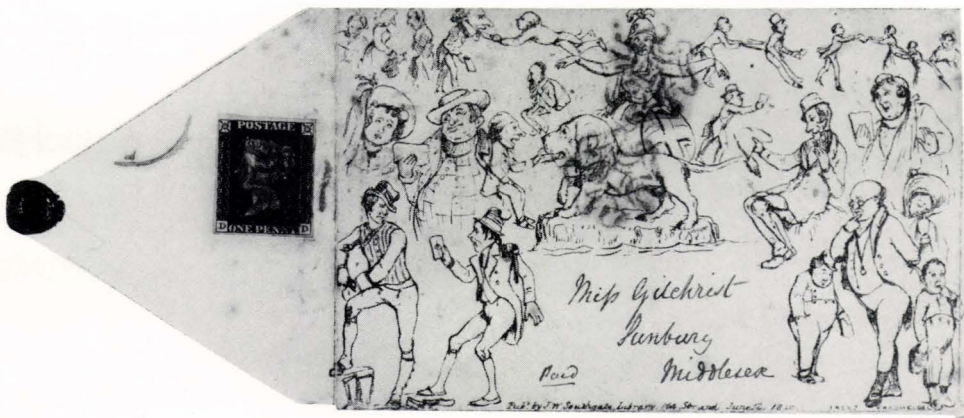 POSTAGE
D ONE PENNY D
Miss Gilchrist
Sunbury
Middlesex
Paid
Pub. by J W Southgate, Library 164 Strand June